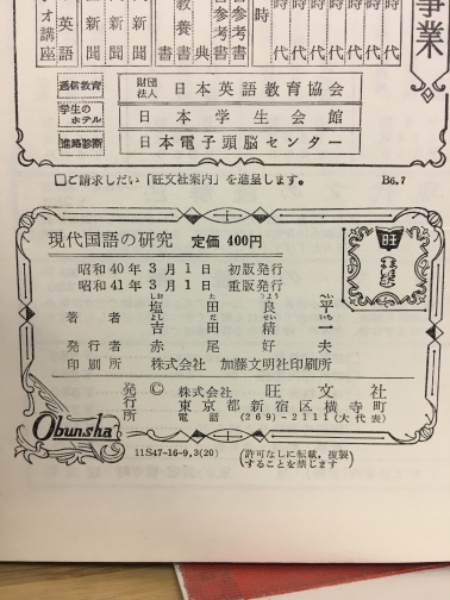 事業
オ講座
英語
新聞
新聞
新聞
教養書
典
参考書
参考書
時
時代
時代
時代
時代
時代
通信教育
財団法人 日本英語教育協会
学生のホテル
日本学生会館
進路診断
日本電子頭脳センター
□ご請求しだい「旺文社案内」を進呈します。 B6.7
現代国語の研究 定価 400円
旺
昭和40年3月1日 初版発行
昭和41年3月1日 重版発行
しお だ りょう へい
著者 塩田良平
よし だ せい いち
吉田精一
発行者 赤尾好夫
印刷所 株式会社 加藤文明社印刷所
発行所 © 株式会社 旺文社
東京都新宿区横寺町
電話 (269)-2111(大代表)
Obunsha
11S47-16-9.3(20)
(許可なしに転載,複製することを禁じます)